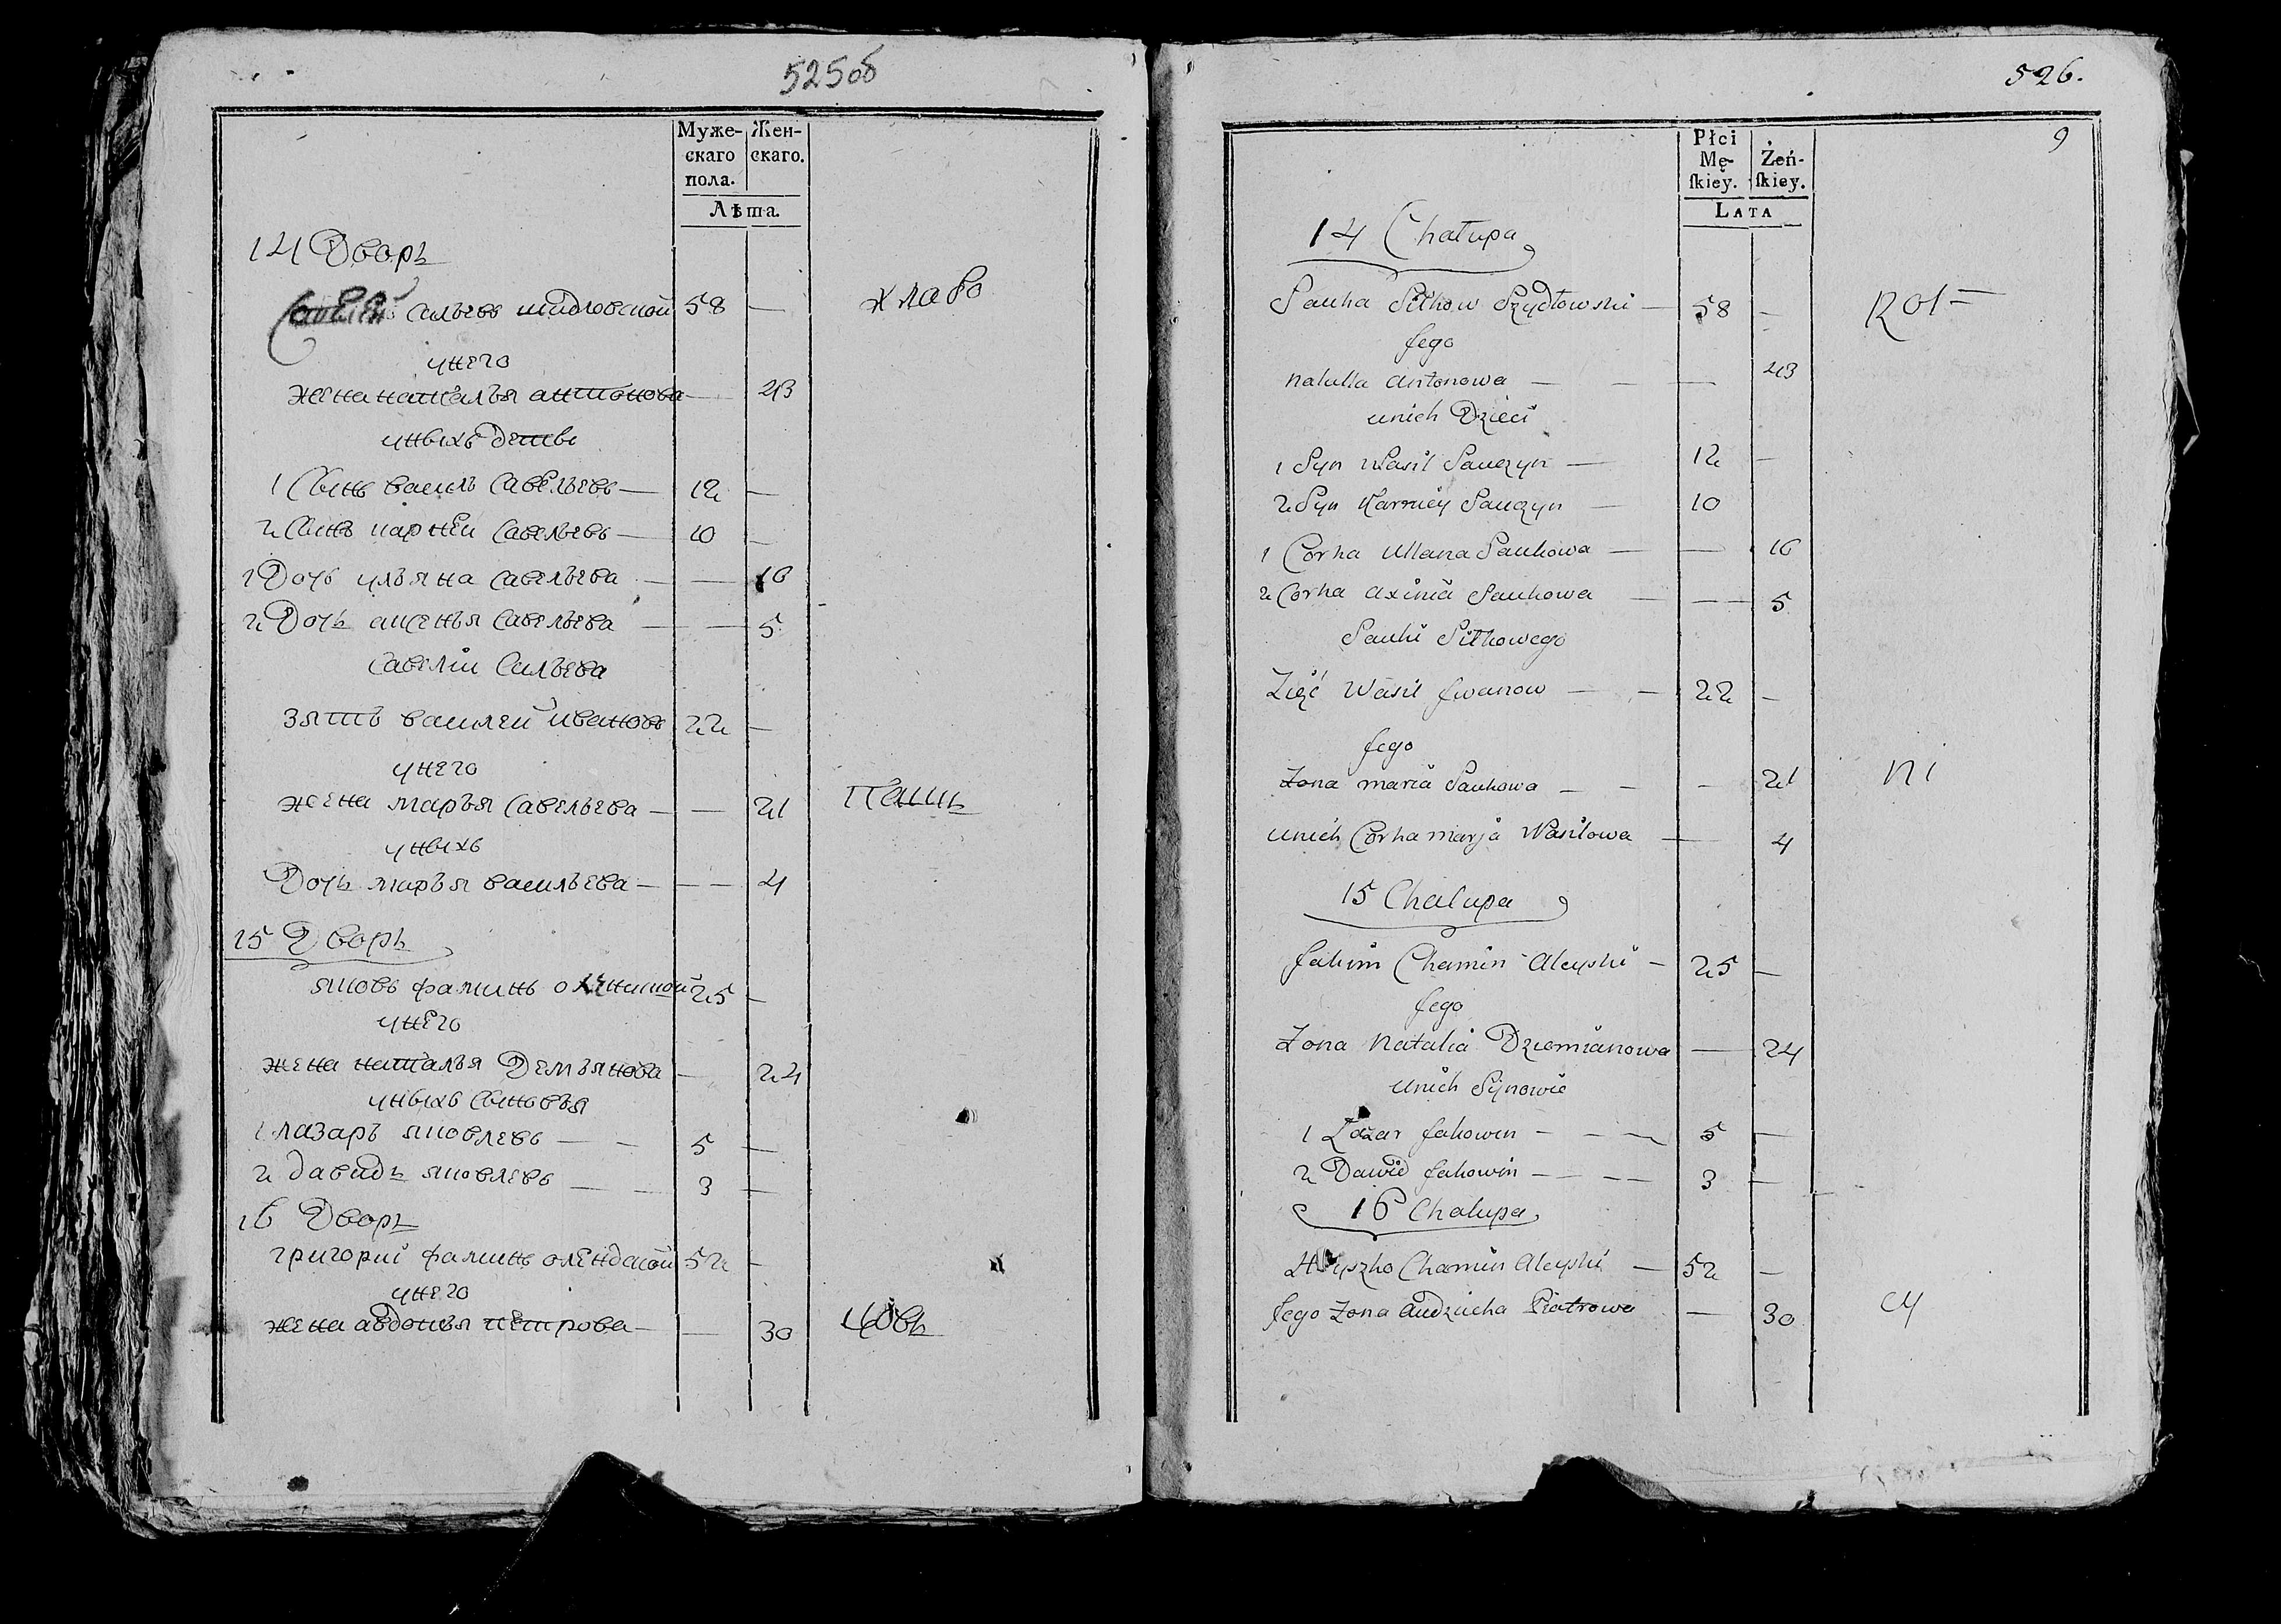 525об
Муже-
скаго
пола.
Жен-
скаго.
Лѣта.
14 Дворъ
Савелей Сильевъ шидловской 58 —
хлаво
унего
жена наталья антонова — 43
уныхъ дети
1 Сынъ василь Савельевъ — 12 —
2 Сынъ карней Савельевъ — 10 —
1 Дочь ульяна Савельева — — 16
2 Дочь аксенья Савельева — — 5
Савелiи Сильева
зять василей ивановъ 22 —
унего
жена марья Савельева — — 21
уныхъ
Дочь марья васильева — — — 4
15 Дворъ
яковъ фаминъ 25 —
унего
жена наталья Демьянова — 24
уныхъ Сыновья
1 лазаръ яковлевъ — — 5 —
2 давидъ яковлевъ — — 3 —
16 Дворъ
григорий фаминъ олендской 52 —
унего
жена авдотья петрова — — 30
цовъ
526.
9
Płci
Mę-
skiey.
Żeń-
skiey.
LATA
14 Chałupa
Sauka Siłkow Szydłowski — 58 —
Rot =
Jego
natalla antonowa — — — 43
unich Dzieci
1 Syn Wasil Sauczyn — 12 —
2 Syn Karniey Sauczyn — 10
1 Corka Ullana Saukowa — — 16
2 Corka axinia Saukowa — — 5
Sauki Siłkowego
Zięć Wasil Jwanow — — 22 —
Jego
Zona maria Saukowa — — — 21
ni
unich Corka marja Wasilowa — 4
15 Chalupa
Jakim Chamin Aleyski — 25 —
Jego
Zona Natalia Dziemianowa — 24
unich Synowie
1 Łazar Jakowin — — — 5 —
2 Dawid Jakowin — — — 3 —
16 Chalupa
Hryszko Chamin Aleyski — 52 —
Jego Zona Audziucha Piatrowa — 30